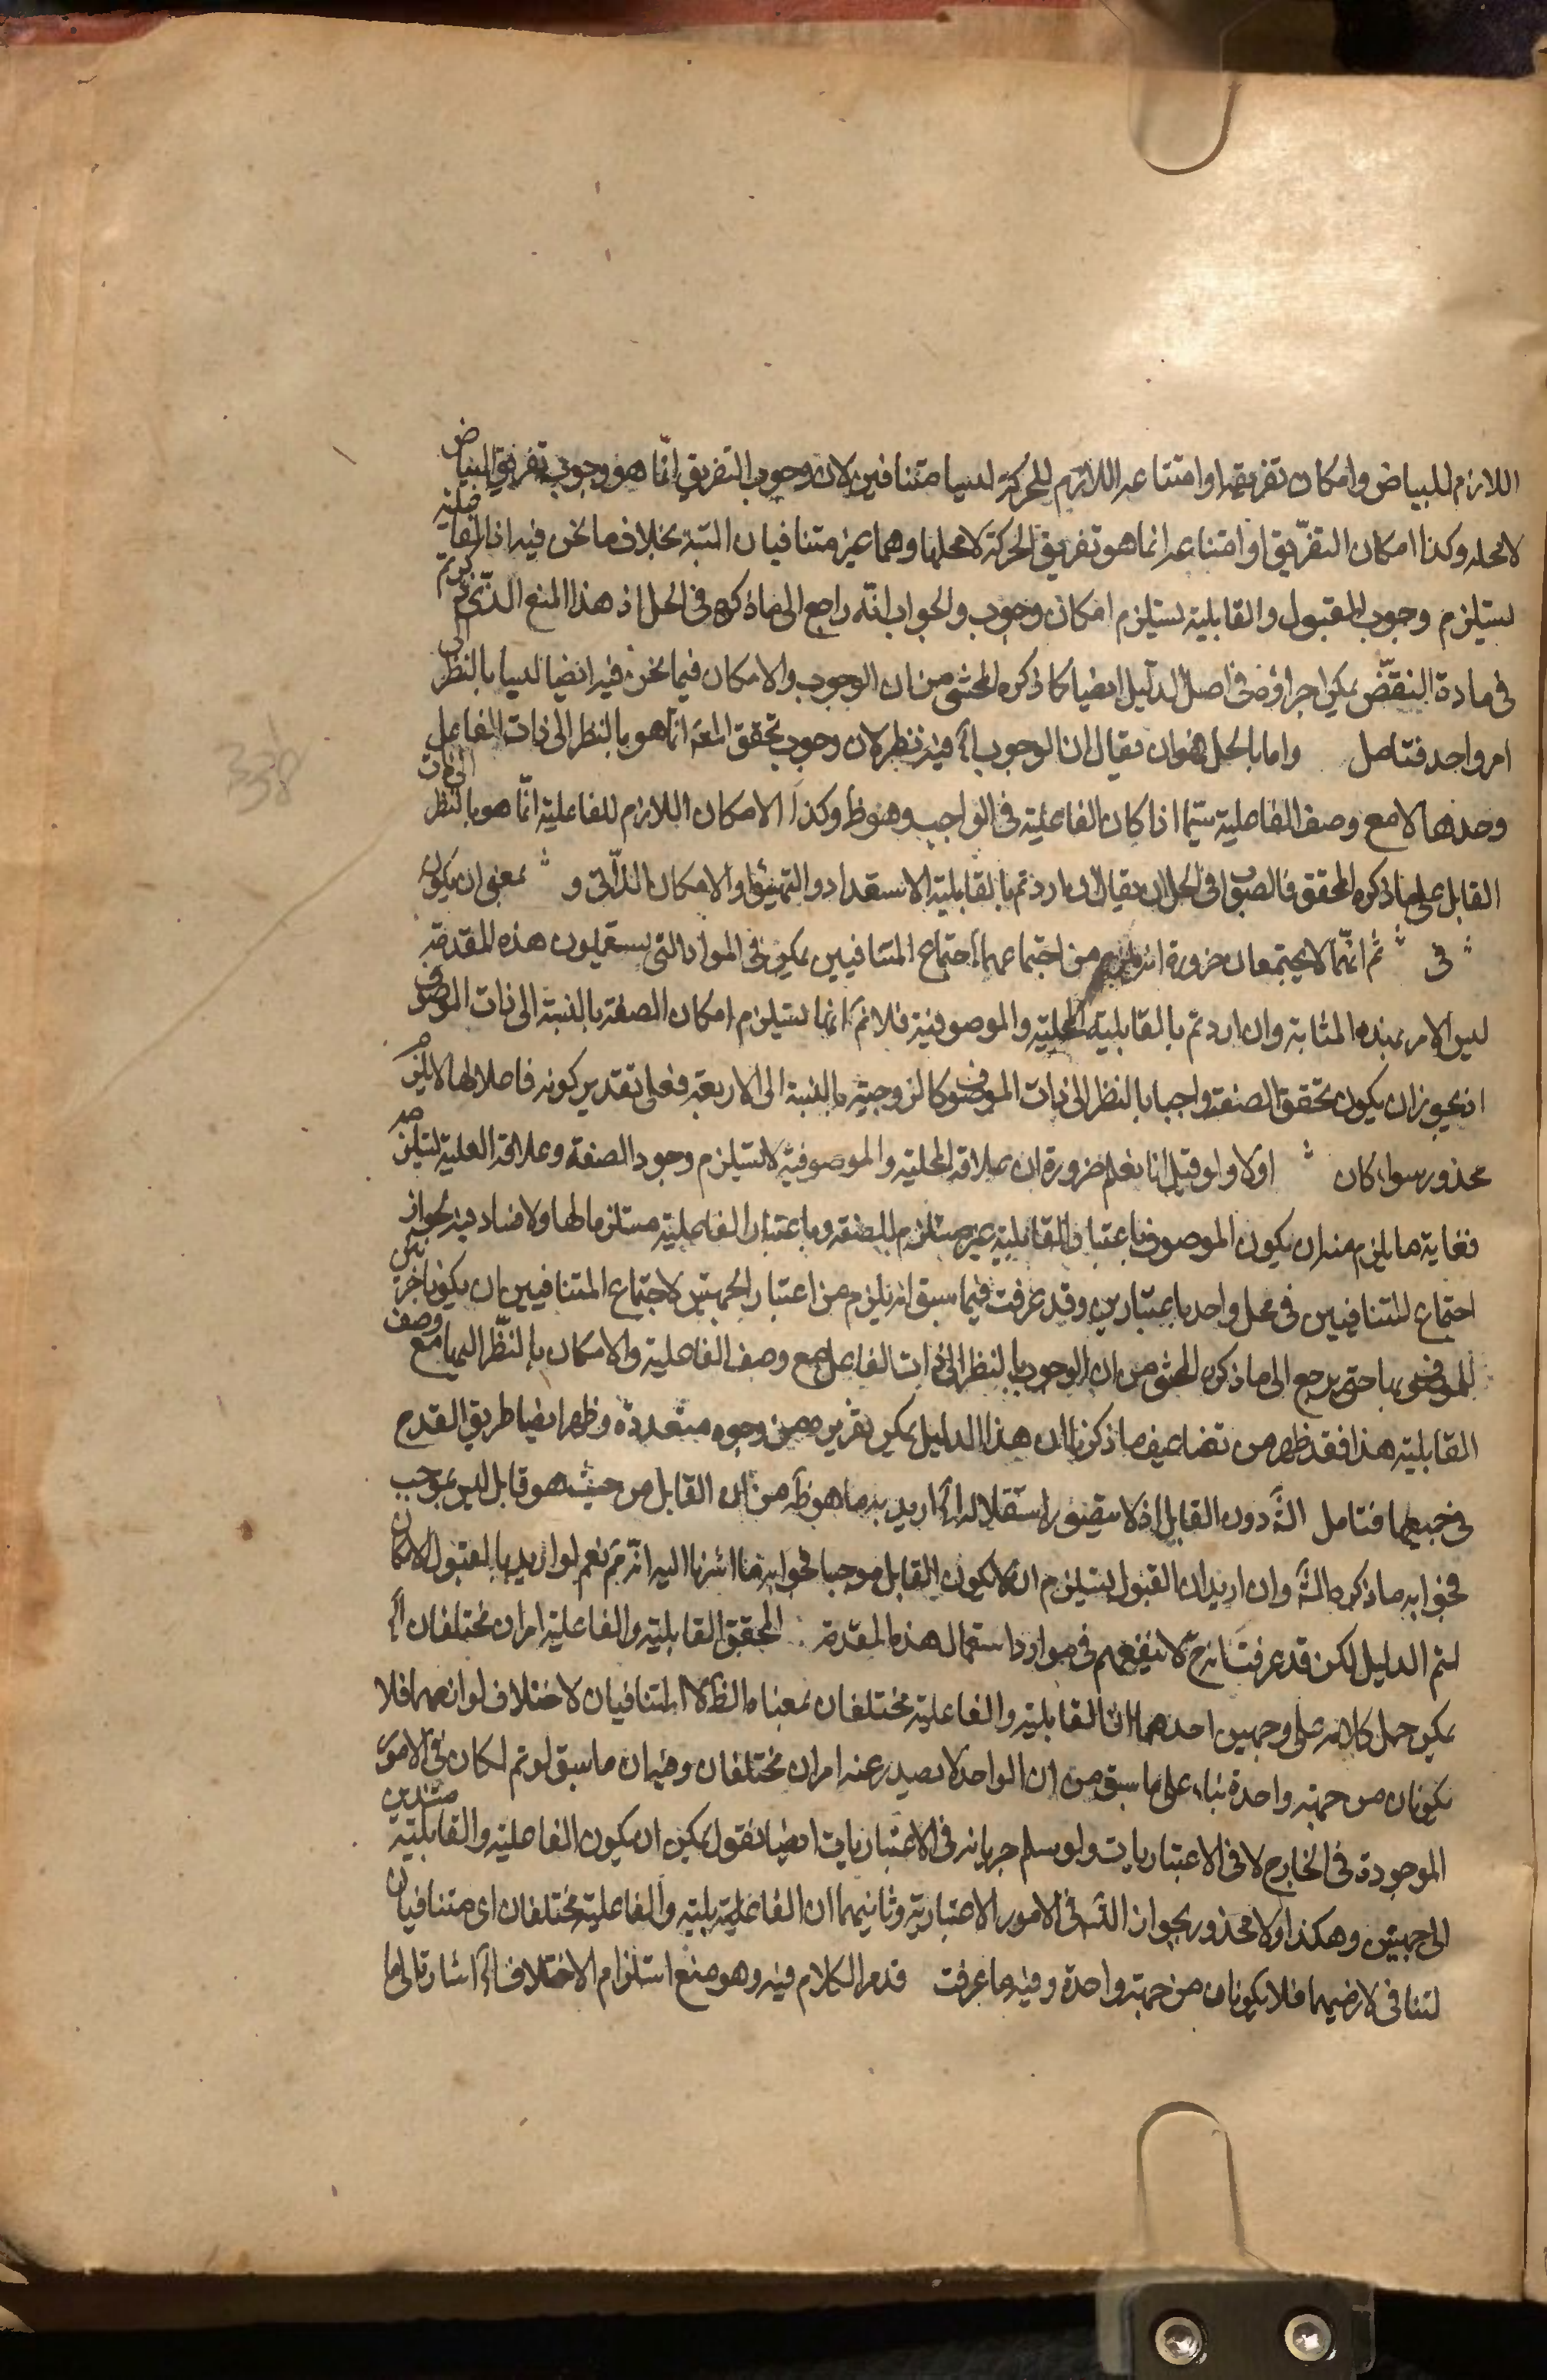 اللازم للبياض وامكان تفريقه او امتناعه اللازم للحركة ليسا متنافيين لان وجوب التفريق انما هو وجوب تفريق البياض
لا محله وكذا امكان التفريق او امتناعه انما هو تفريق الحركة لا محلها وهما غير متنافيان البتة بخلاف ما نحن فيه اذ الفاعلية
يستلزم وجوب المقبول والقابلية يستلزم امكان وجوب والجواب انه راجع الى ما ذكره في الحل اذ هذا المنع الذي ذكرتم
في مادة النقض يمكن اجراؤه في اصل الدليل ايضا كما ذكره المحشى من ان الوجوب والامكان فيما نحن فيه ايضا ليسا بالنظر الى
امر واحد فتامل واما بالحل فهو ان يقال ان الوجوب آه فيه نظر لان وجوب تحقق المعـ انما هو بالنظر الى ذات الفاعل
وحدها لا مع وصف الفاعلية سيما اذا كان الفاعلية في الواجب وهو ظ وكذا الامكان اللازم للفاعلية انما هو بالنظر الى ذات
القابل على ما ذكره المحقق فالصواب في الحل ان يقال ان اردتم بالقابلية الاستعداد والتهيؤ والامكان الذاتي و بمعنى ان يكون
في ثم انهما لا يجتمعان ضرورة انه يلزم من اجتماعهما اجتماع المتنافيين يمكن في المواد التي يستعملون هذه المقدمة
ليس الامر بهذه المثابة وان اردتم بالقابلية المحلية والموصوفية فلا نم انما يستلزم امكان الصفة بالنسبة الى ذات الموصوف
اذ يجوز ان يكون تحقق الصفة واجبا بالنظر الى ذات الموصوف كالزوجية بالنسبة الى الاربعة فعلى تقدير كونه فاعلا لها لا يلزم
محذور سواء كان اولا ولو قيل انا نعلم ضرورة ان علاقة المحلية والموصوفية لا يستلزم وجود الصفة وعلاقة العلية يستلزمه
فغاية ما يلزم منه ان يكون الموصوف باعتبار القابلية غير مستلزم للصفة وباعتبار الفاعلية مستلزما لها ولا فساد فيه لجواز
اجتماع المتنافيين في محل واحد باعتبارين وقد عرفت فيما سبق انه يلزم من اعتبار الجهتين لاجتماع المتنافيين ان يكونا جزئي
للموصوف بهما حتى يرجع الى ما ذكره المحشى من ان الوجوب بالنظر الى ذات الفاعل مع وصف الفاعلية والامكان بالنظر اليها مع وصف
القابلية هذا فقد ظهر من تضاعيف ما ذكرنا ان هذا الدليل يمكن تقريره من وجوه متعددة وظهر ايضا طريق القدح
في جميعها فتامل دون القابل اذ لا يتصور استقلاله آه اريد به ما هو ظ من ان القابل من حيث هو قابل ليس بموجب
فجوابه ما ذكره وان اريد ان القبول يستلزم ان لا يكون القابل موجبا فجوابه ما اشرنا اليه انه نعم لو اريد بالقبول الامكان
لتم الدليل لكن قد عرفت انه ح لا ينفعهم في موارد استعمال هذه المقدمة المحقق القابلية والفاعلية امران مختلفان آه
يمكن حمل كلامه على وجهين احدهما ان القابلية والفاعلية مختلفان بمعناه الظ لا المتنافيان لاختلاف لوازمهما فلا
يكونان من جهة واحدة بناء على ما سبق من ان الواحد لا يصدر عنه امران مختلفان وفيه ان ما سبق لو تم لكان في الامور
الموجودة في الخارج لا في الاعتباريات ولو سلم جريانه في الاعتباريات ايضا نقول يمكن ان يكون الفاعلية والقابلية مستندين
الى جهتين وهكذا ولا محذور بجواز التس في الامور الاعتبارية وثانيهما ان القابلية والفاعلية مختلفان اى متنافيان
لتنافى لازميهما فلا يكونان من جهة واحدة وفيه ما عرفت قد مر الكلام فيه وهو منع استلزام الاختلاف آه اشارة الى ما